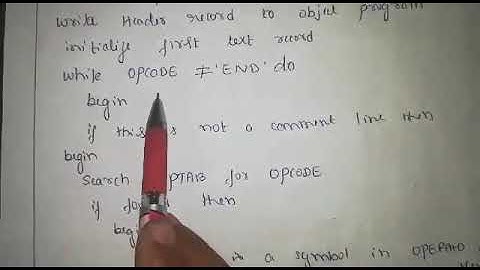 write Header record to object program
initialize first text record
while OPCODE ≠ 'END' do
begin
if this is not a comment line then
begin
Search OPTAB for OPCODE
if found then
begin
is a symbol in OPERAND